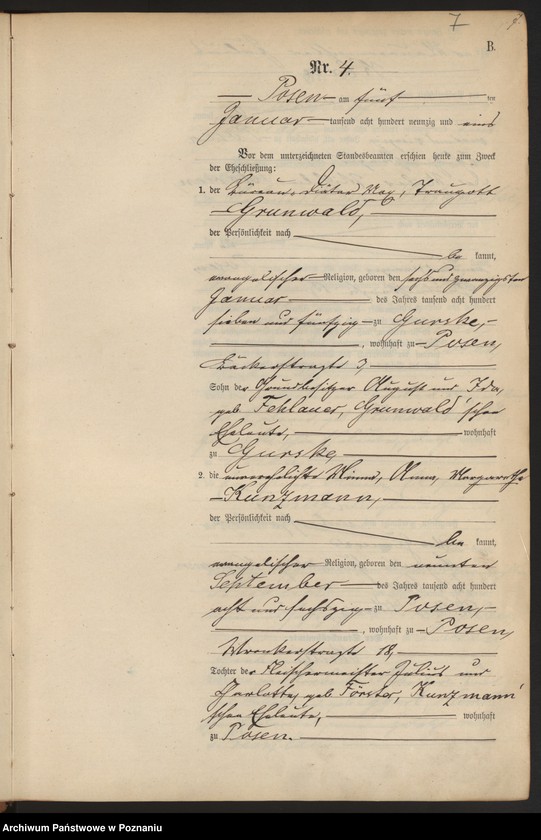 7
B.
Nr. 4.
Posen am fünf ten
Januar tausend acht hundert neunzig und eins
Vor dem unterzeichneten Standesbeamten erschien heute zum Zweck
der Eheschließung:
1. der Büreau-Diätar Max, Traugott
Grunwald,
der Persönlichkeit nach
be kannt,
evangelischer Religion, geboren den sechs und zwanzigsten
Januar des Jahres tausend acht hundert
sieben und fünfzig zu Gurske,
, wohnhaft zu Posen,
Bäckerstraße 3,
Sohn der Grundbesitzer August und Ida,
geb. Fehlauer, Grunwald'schen
Eheleute, wohnhaft
zu Gurske
2. die unverehelichte Minna, Anna, Margarethe
Kunzmann,
der Persönlichkeit nach
be kannt,
evangelischer Religion, geboren den neunten
September des Jahres tausend acht hundert
acht und sechszig zu Posen,
, wohnhaft zu Posen,
Wronkerstraße 18,
Tochter der Fleischermeister Julius und
Charlotte, geb. Förster, Kunzmann'
schen Eheleute, wohnhaft
zu Posen.
Archiwum Państwowe w Poznaniu